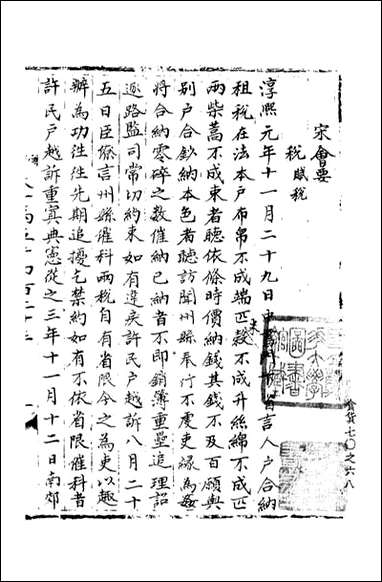 宋會要
稅賦 稅
淳熙元年十一月二十九日中書門下省言人戶合納
租稅在法本戶布帛不成端匹穀不成升絲綿不成匹
兩柴蒿不成束者聽依條時價納錢其錢不及百願與
別戶合鈔納本色者聽訪聞州縣奉行不虔吏緣為姦
將合納零碎之數催納已納者不即銷簿重疊追理詔
逐路監司常切約束如有違戾許民戶越訴八月二十
五日臣僚言州縣催科兩稅自有省限今之為吏以趣
辦為功往往先期追擾乞禁約如有不依省限催科者
許民戶越訴重寘典憲從之三年十一月十二日南郊
食貨七〇之六八